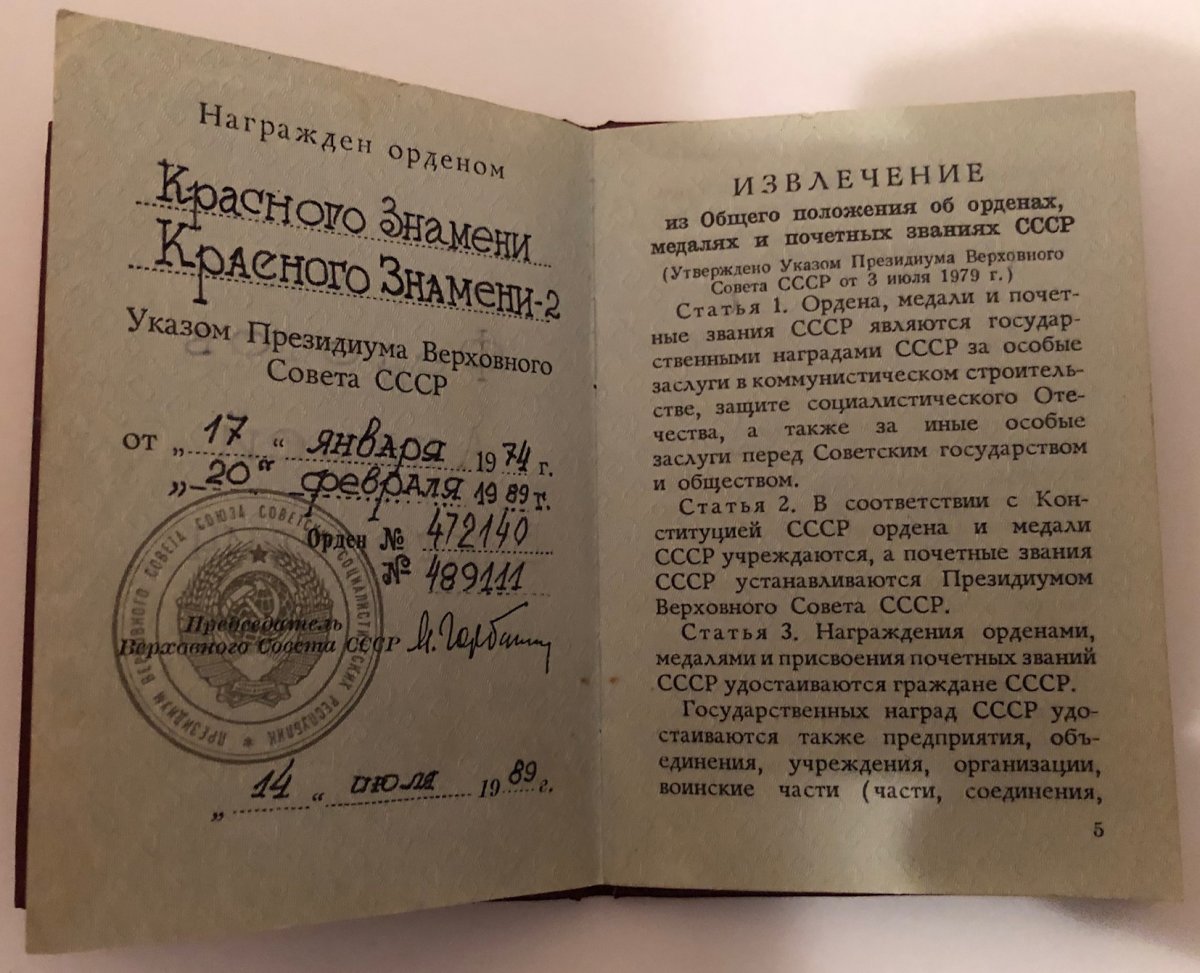 Награжден орденом
Красного Знамени
Красного Знамени-2
Указом Президиума Верховного
Совета СССР
от „17“ января 1974 г.
„20“ февраля 1989 г.
Орден № 472140
№ 489111
Председатель
Верховного Совета СССР М. Горбачев
ПРЕЗИДИУМ ВЕРХОВНОГО СОВЕТА СОЮЗА СОВЕТСКИХ СОЦИАЛИСТИЧЕСКИХ РЕСПУБЛИК *
„14“ июля 1989 г.
ИЗВЛЕЧЕНИЕ
из Общего положения об орденах,
медалях и почетных званиях СССР
(Утверждено Указом Президиума Верховного
Совета СССР от 3 июля 1979 г.)
Статья 1. Ордена, медали и почет-
ные звания СССР являются государ-
ственными наградами СССР за особые
заслуги в коммунистическом строитель-
стве, защите социалистического Оте-
чества, а также за иные особые
заслуги перед Советским государством
и обществом.
Статья 2. В соответствии с Кон-
ституцией СССР ордена и медали
СССР учреждаются, а почетные звания
СССР устанавливаются Президиумом
Верховного Совета СССР.
Статья 3. Награждения орденами,
медалями и присвоения почетных званий
СССР удостаиваются граждане СССР.
Государственных наград СССР удо-
стаиваются также предприятия, объ-
единения, учреждения, организации,
воинские части (части, соединения,
5